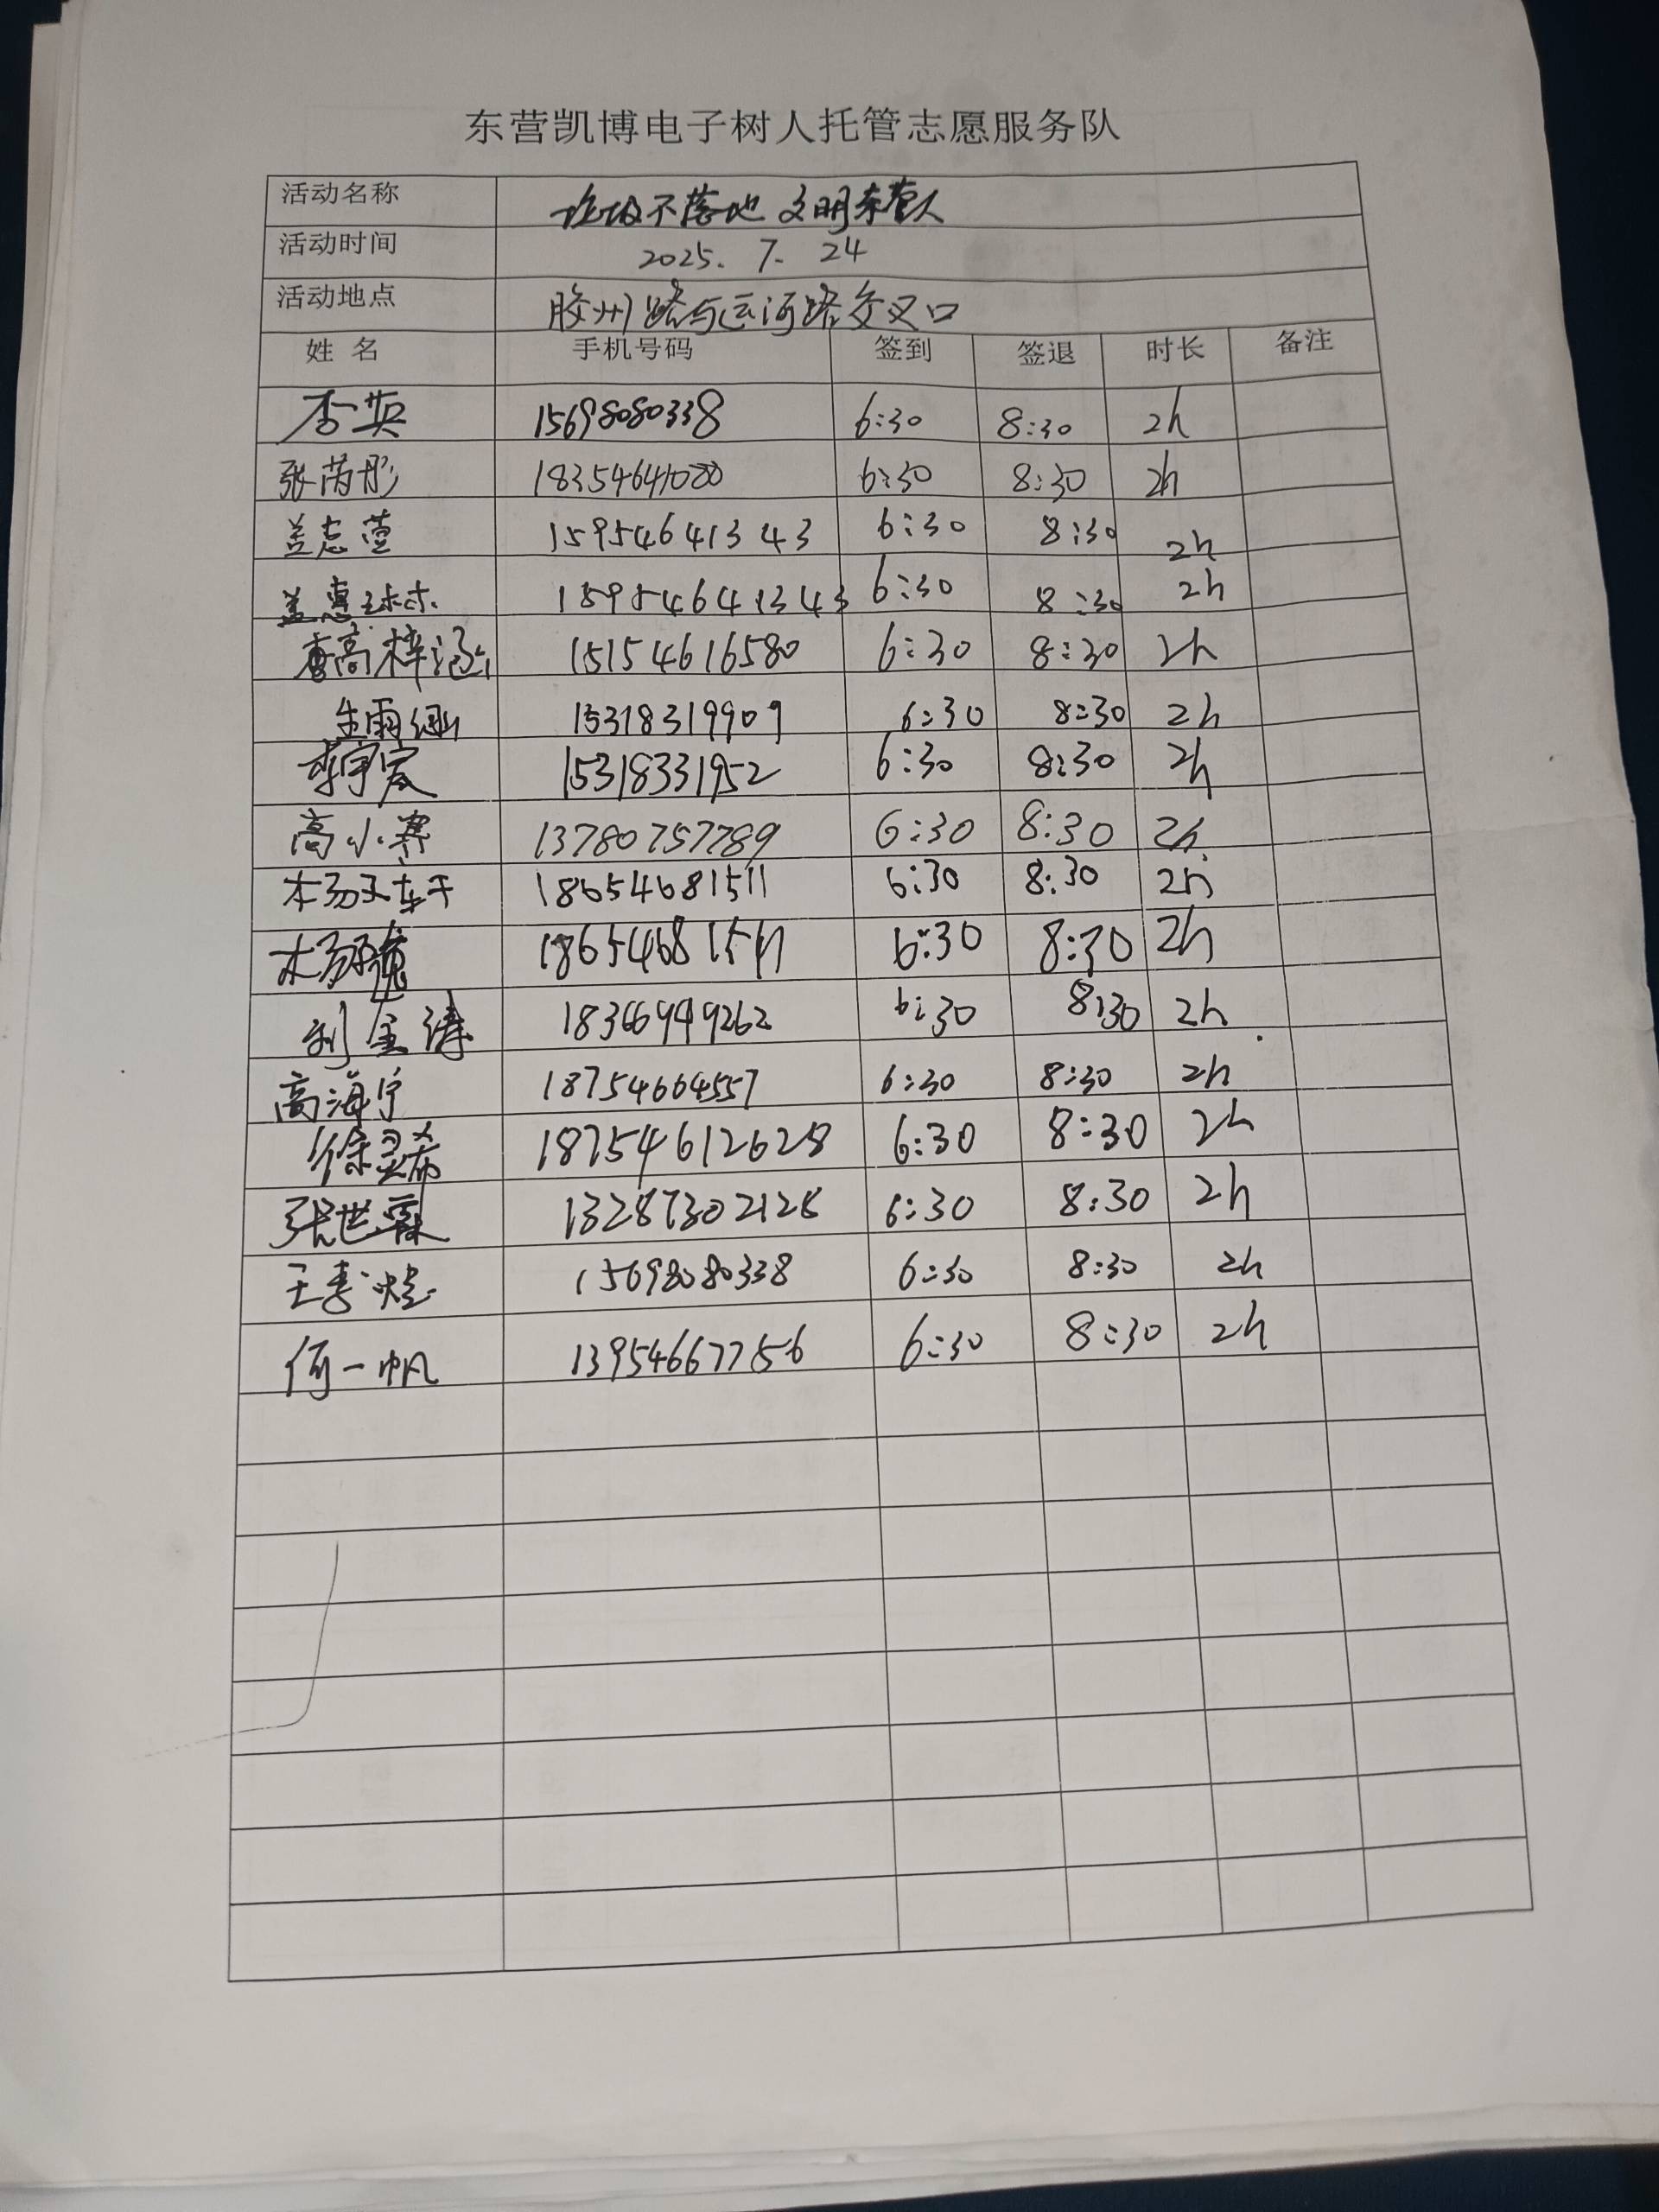 东营凯博电子树人托管志愿服务队
活动名称 垃圾不落地 文明东营人
活动时间 2025. 7. 24
活动地点 胶州路与运河路交叉口
姓 名 手机号码 签到 签退 时长 备注
李英 15698080338 6:30 8:30 2h
张芮彤 18354641020 6:30 8:30 2h
盖志莹 15954641343 6:30 8:30 2h
盖惠 15954641343 6:30 8:30 2h
高梓涵 15154616580 6:30 8:30 2h
生雨 15318319909 6:30 8:30 2h
李宇宸 15318331952 6:30 8:30 2h
高小寒 13780757789 6:30 8:30 2h
18654681511 6:30 8:30 2h
18654681511 6:30 8:30 2h
刘金涛 18366949262 6:30 8:30 2h
高海宁 18754664557 6:30 8:30 2h
徐灵希 18754612628 6:30 8:30 2h
张世霖 13287302128 6:30 8:30 2h
王 15698080338 6:30 8:30 2h
何一帆 13954667756 6:30 8:30 2h